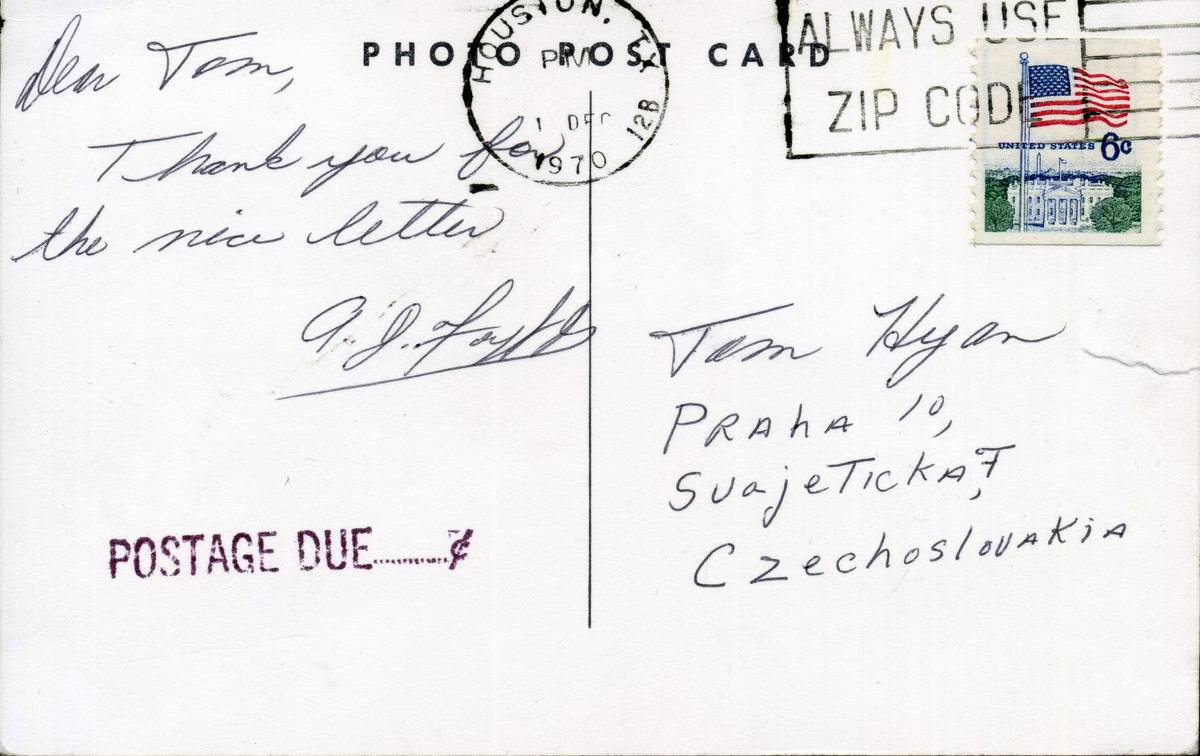 PHOTO POST CARD
HOUSTON, TX
PM
1 DEC
1970
12B
ALWAYS USE
ZIP CODE
UNITED STATES 6c
Dear Tom,
Thank you for
the nice letter
A. J. Foyt Jr
POSTAGE DUE..........¢
Tom Hyan
PRAhA 10,
SuajeTickA 7,
CzechoslovAkiA